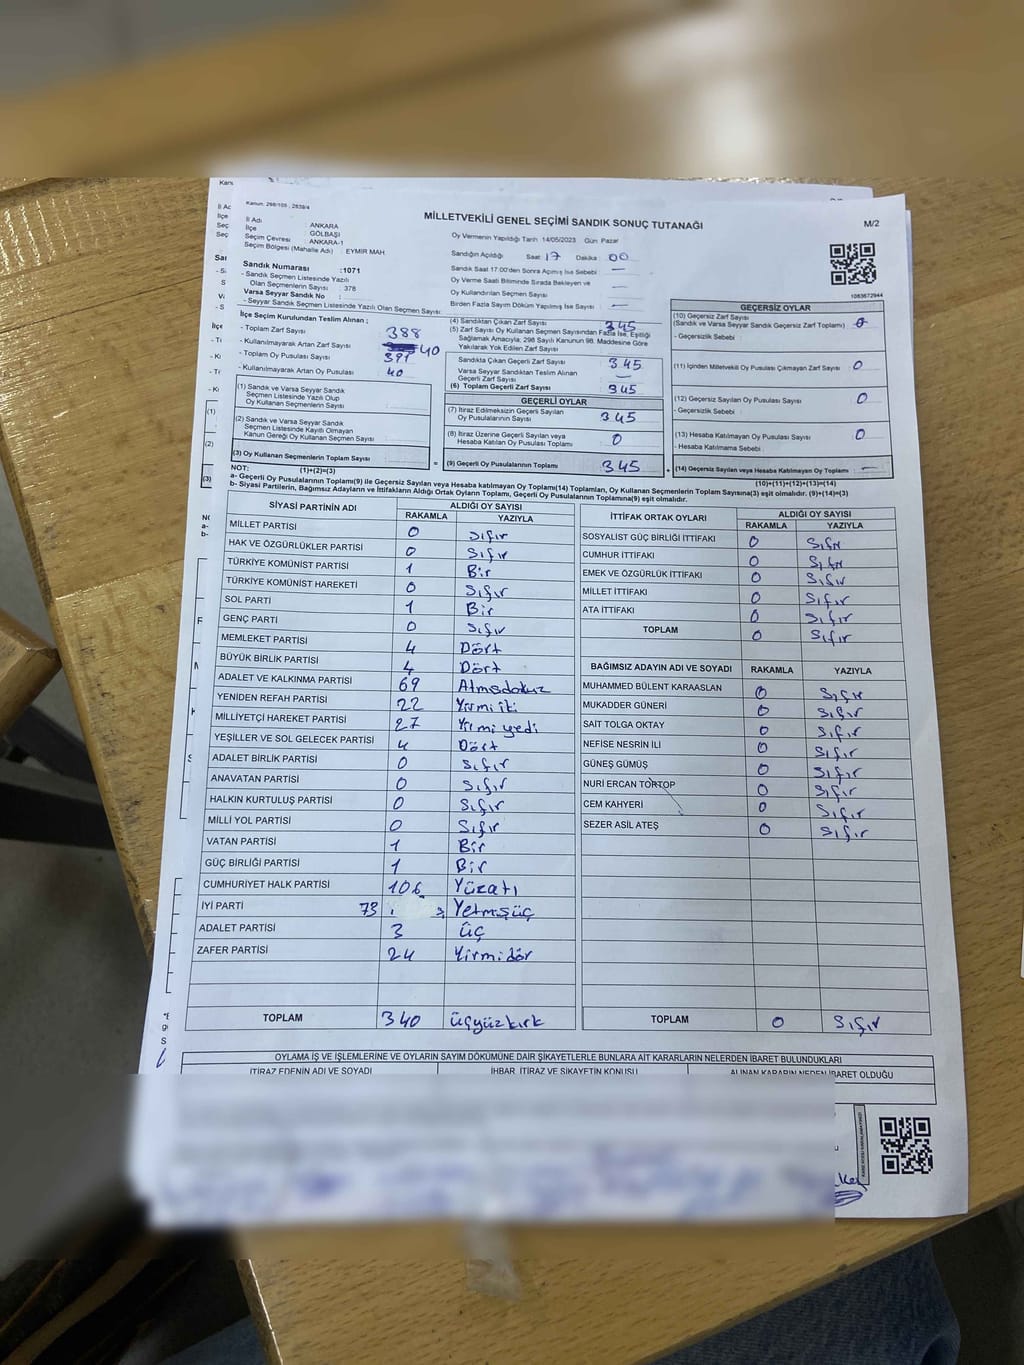 Kanun: 298/105 , 2839/4
MİLLETVEKİLİ GENEL SEÇİMİ SANDIK SONUÇ TUTANAĞI
M/2
İl Adı ANKARA
İlçe GÖLBAŞI
Seçim Çevresi ANKARA-1
Seçim Bölgesi (Mahalle Adı) : EYMİR MAH.
Sandık Numarası :1071
- Sandık Seçmen Listesinde Yazılı
Olan Seçmenlerin Sayısı : 378
Varsa Seyyar Sandık No :
- Seyyar Sandık Seçmen Listesinde Yazılı Olan Seçmen Sayısı:
Oy Vermenin Yapıldığı Tarih 14/05/2023 Gün Pazar
Sandığın Açıldığı Saat 17 Dakika 00
Sandık Saat 17:00'den Sonra Açılmış İse Sebebi —
Oy Verme Saati Bitiminde Sırada Bekleyen ve
Oy Kullandırılan Seçmen Sayısı : —
Birden Fazla Sayım Döküm Yapılmış İse Sayısı : —
1083672944
İlçe Seçim Kurulundan Teslim Alınan ;
- Toplam Zarf Sayısı 388
- Kullanılmayarak Artan Zarf Sayısı 40
- Toplam Oy Pusulası Sayısı 391
- Kullanılmayarak Artan Oy Pusulası 40
(1) Sandık ve Varsa Seyyar Sandık
Seçmen Listesinde Yazılı Olup
Oy Kullanan Seçmenlerin Sayısı :
(2) Sandık ve Varsa Seyyar Sandık
Seçmen Listesinde Kayıtlı Olmayan
Kanun Gereği Oy Kullanan Seçmen Sayısı :
(3) Oy Kullanan Seçmenlerin Toplam Sayısı :
(4) Sandıktan Çıkan Zarf Sayısı 345
(5) Zarf Sayısı Oy Kullanan Seçmen Sayısından Fazla İse, Eşitliği
Sağlamak Amacıyla; 298 Sayılı Kanunun 98. Maddesine Göre
Yakılarak Yok Edilen Zarf Sayısı
Sandıkta Çıkan Geçerli Zarf Sayısı 345
Varsa Seyyar Sandıktan Teslim Alınan
Geçerli Zarf Sayısı —
(6) Toplam Geçerli Zarf Sayısı 345
GEÇERLİ OYLAR
(7) İtiraz Edilmeksizin Geçerli Sayılan
Oy Pusulalarının Sayısı : 345
(8) İtiraz Üzerine Geçerli Sayılan veya
Hesaba Katılan Oy Pusulası Toplamı 0
= (9) Geçerli Oy Pusulalarının Toplamı 345
GEÇERSİZ OYLAR
(10) Geçersiz Zarf Sayısı
(Sandık ve Varsa Seyyar Sandık Geçersiz Zarf Toplamı) 0
- Geçersizlik Sebebi
(11) İçinden Milletvekili Oy Pusulası Çıkmayan Zarf Sayısı 0
(12) Geçersiz Sayılan Oy Pusulası Sayısı 0
- Geçersizlik Sebebi
(13) Hesaba Katılmayan Oy Pusulası Sayısı 0
- Hesaba Katılmama Sebebi
+ (14) Geçersiz Sayılan veya Hesaba Katılmayan Oy Toplamı —
NOT: (1)+(2)=(3) (10)+(11)+(12)+(13)=(14)
a- Geçerli Oy Pusulalarının Toplamı(9) ile Geçersiz Sayılan veya Hesaba katılmayan Oy Toplamı(14) Toplamları, Oy Kullanan Seçmenlerin Toplam Sayısına(3) eşit olmalıdır. (9)+(14)=(3)
b- Siyasi Partilerin, Bağımsız Adayların ve İttifakların Aldığı Ortak Oyların Toplamı, Geçerli Oy Pusulalarının Toplamına(9) eşit olmalıdır.
SİYASİ PARTİNİN ADI ALDIĞI OY SAYISI
RAKAMLA YAZIYLA
MİLLET PARTİSİ 0 Sıfır
HAK VE ÖZGÜRLÜKLER PARTİSİ 0 Sıfır
TÜRKİYE KOMÜNİST PARTİSİ 1 Bir
TÜRKİYE KOMÜNİST HAREKETİ 0 Sıfır
SOL PARTİ 1 Bir
GENÇ PARTİ 0 Sıfır
MEMLEKET PARTİSİ 4 Dört
BÜYÜK BİRLİK PARTİSİ 4 Dört
ADALET VE KALKINMA PARTİSİ 69 Atmışdokuz
YENİDEN REFAH PARTİSİ 22 Yirmi iki
MİLLİYETÇİ HAREKET PARTİSİ 27 Yirmi yedi
YEŞİLLER VE SOL GELECEK PARTİSİ 4 Dört
ADALET BİRLİK PARTİSİ 0 Sıfır
ANAVATAN PARTİSİ 0 Sıfır
HALKIN KURTULUŞ PARTİSİ 0 Sıfır
MİLLİ YOL PARTİSİ 0 Sıfır
VATAN PARTİSİ 1 Bir
GÜÇ BİRLİĞİ PARTİSİ 1 Bir
CUMHURİYET HALK PARTİSİ 106 Yüzaltı
İYİ PARTİ 73 Yetmişüç
ADALET PARTİSİ 3 Üç
ZAFER PARTİSİ 24 Yirmidör
TOPLAM 340 Üçyüzkırk
İTTİFAK ORTAK OYLARI ALDIĞI OY SAYISI
RAKAMLA YAZIYLA
SOSYALİST GÜÇ BİRLİĞİ İTTİFAKI 0 Sıfır
CUMHUR İTTİFAKI 0 Sıfır
EMEK VE ÖZGÜRLÜK İTTİFAKI 0 Sıfır
MİLLET İTTİFAKI 0 Sıfır
ATA İTTİFAKI 0 Sıfır
TOPLAM 0 Sıfır
BAĞIMSIZ ADAYIN ADI VE SOYADI RAKAMLA YAZIYLA
MUHAMMED BÜLENT KARAASLAN 0 Sıfır
MUKADDER GÜNERİ 0 Sıfır
SAİT TOLGA OKTAY 0 Sıfır
NEFİSE NESRİN İLİ 0 Sıfır
GÜNEŞ GÜMÜŞ 0 Sıfır
NURİ ERCAN TORTOP 0 Sıfır
CEM KAHYERİ 0 Sıfır
SEZER ASİL ATEŞ 0 Sıfır
TOPLAM 0 Sıfır
OYLAMA İŞ VE İŞLEMLERİNE VE OYLARIN SAYIM DÖKÜMÜNE DAİR ŞİKAYETLERLE BUNLARA AİT KARARLARIN NELERDEN İBARET BULUNDUKLARI
İTİRAZ EDENİN ADI VE SOYADI İHBAR, İTİRAZ VE ŞİKAYETİN KONUSU ALINAN KARARIN NEDEN İBARET OLDUĞU